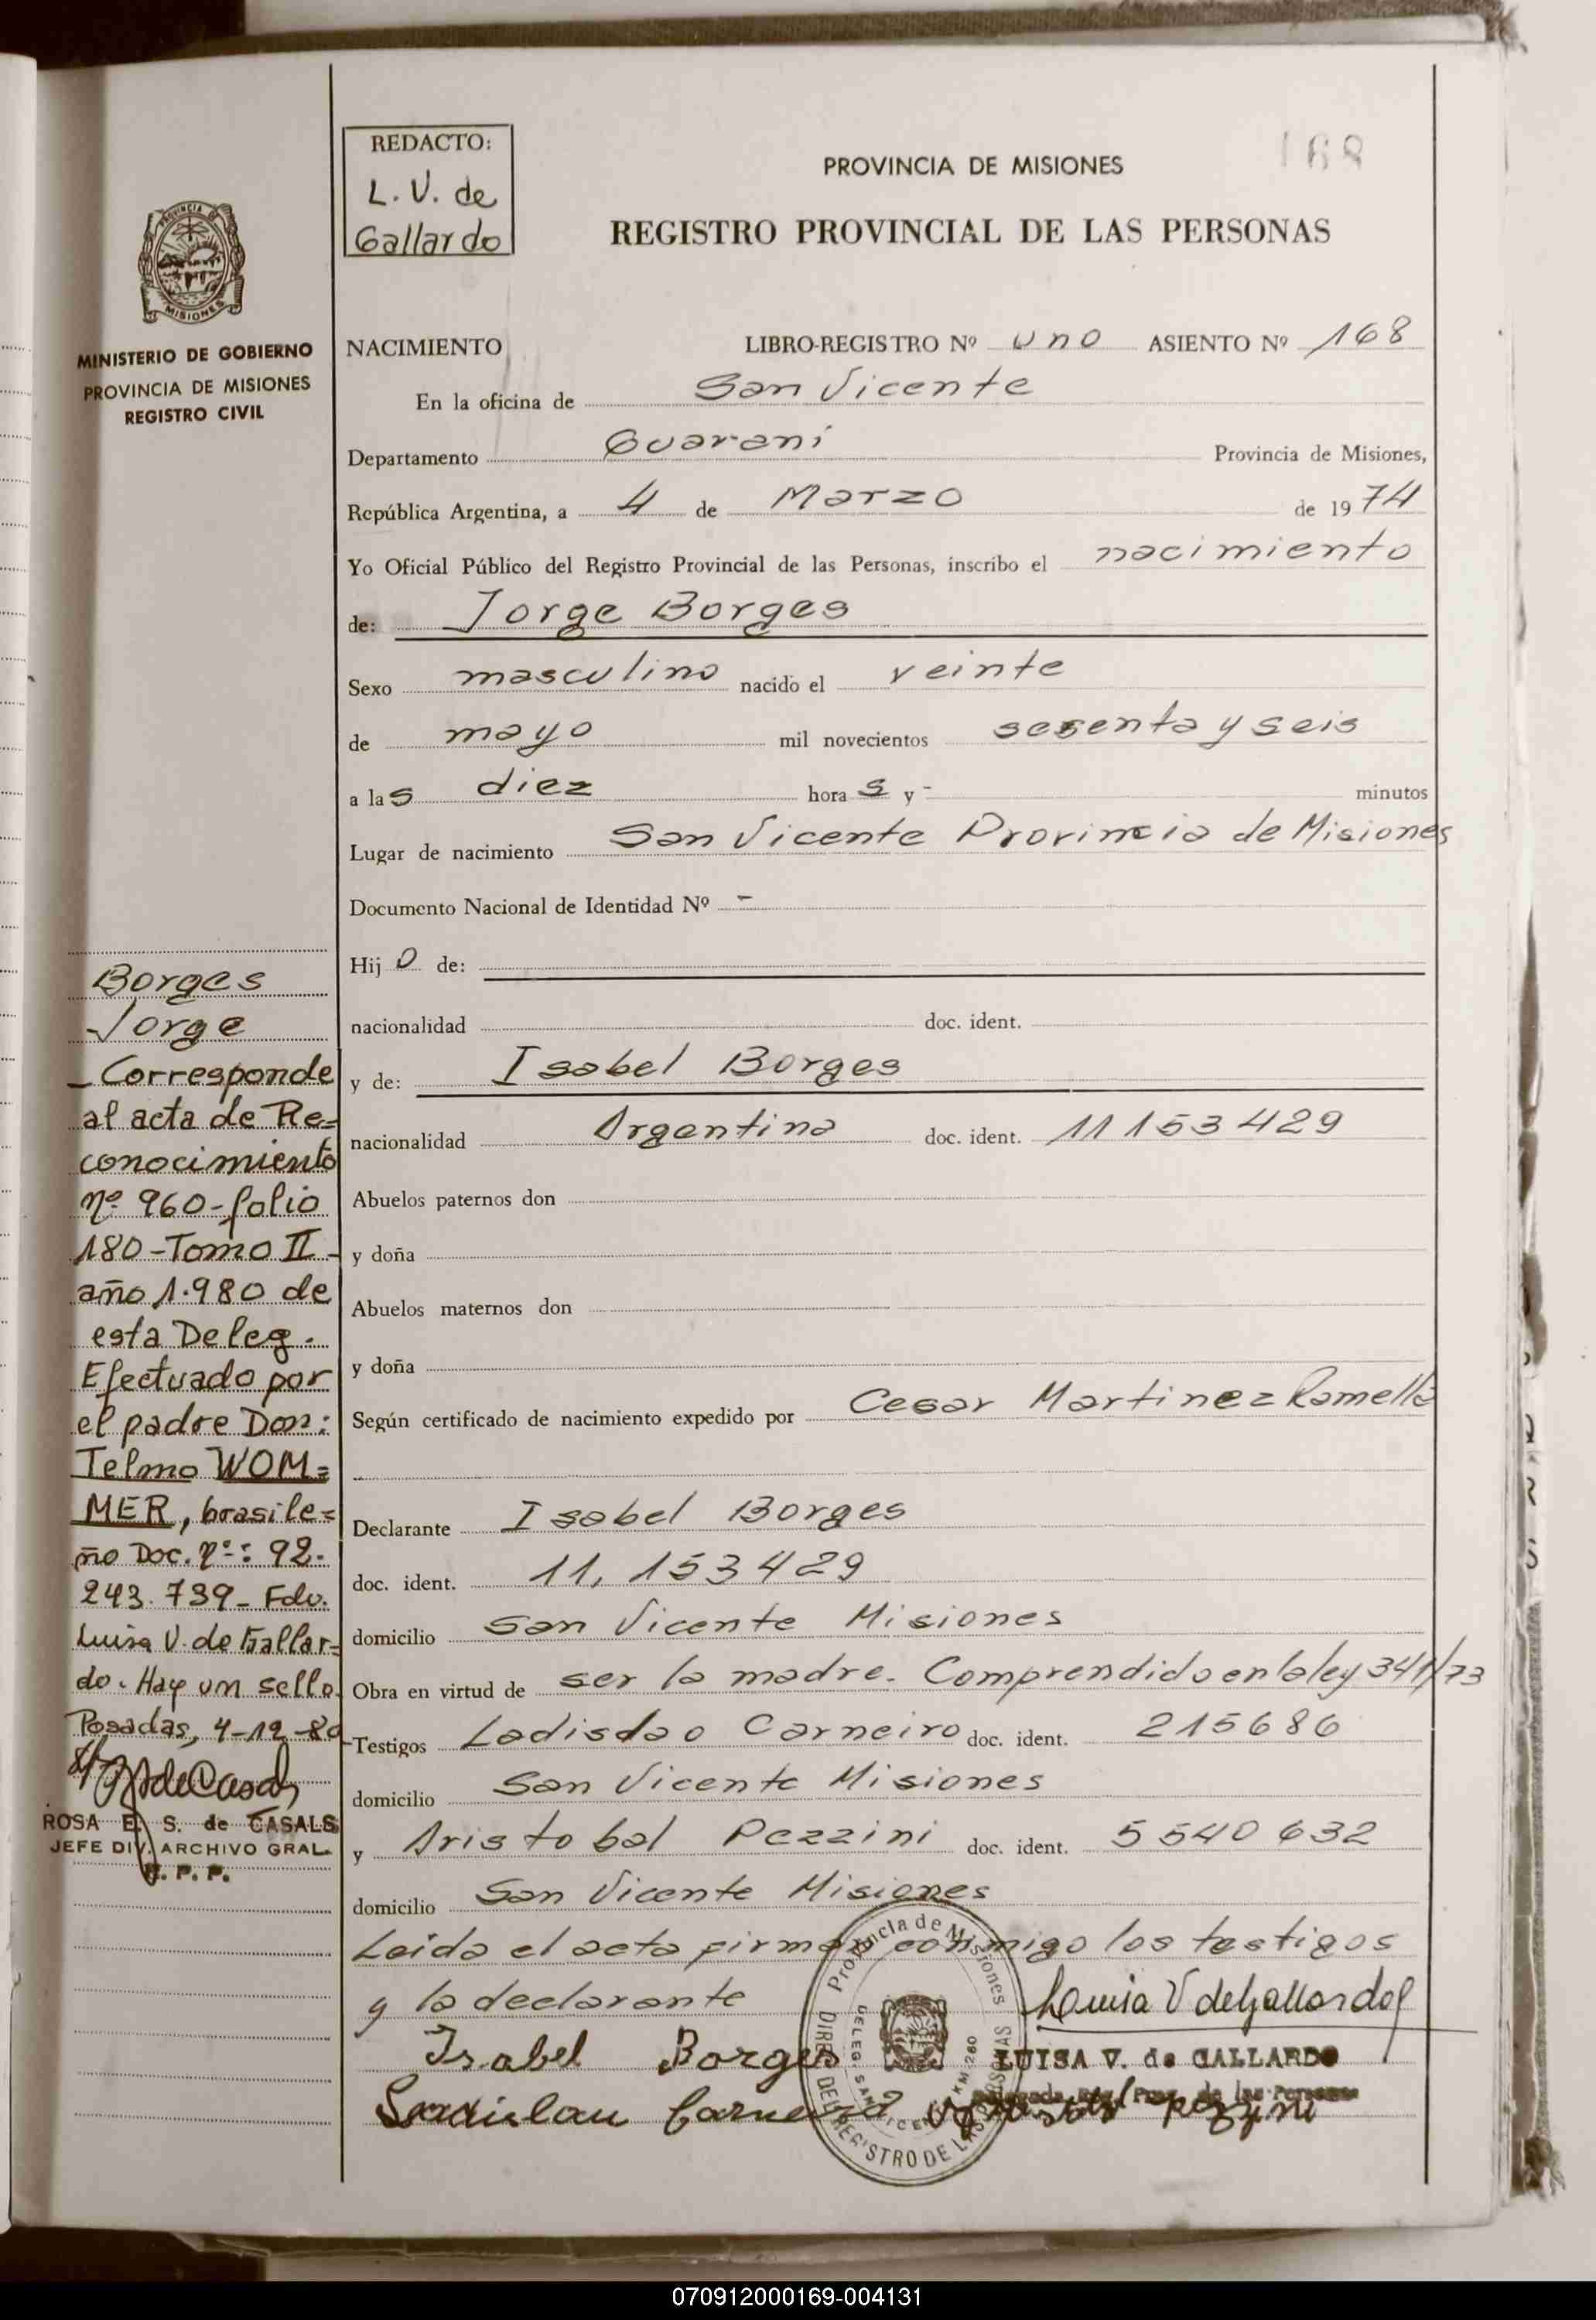 168
REDACTO:
L. V. de
Gallardo
PROVINCIA DE MISIONES
REGISTRO PROVINCIAL DE LAS PERSONAS
PROVINCIA DE
MISIONES
MINISTERIO DE GOBIERNO
PROVINCIA DE MISIONES
REGISTRO CIVIL
NACIMIENTO LIBRO-REGISTRO Nº uno ASIENTO Nº 168
En la oficina de San Vicente
Departamento Guaraní Provincia de Misiones,
República Argentina, a 4 de Marzo de 1974
Yo Oficial Público del Registro Provincial de las Personas, inscribo el nacimiento
de: Jorge Borges
Sexo masculino nacido el veinte
de mayo mil novecientos sesenta y seis
a las diez horas y - minutos
Lugar de nacimiento San Vicente Provincia de Misiones
Documento Nacional de Identidad Nº -
Hijo de:
nacionalidad doc. ident.
y de: Isabel Borges
nacionalidad Argentina doc. ident. 11 153 429
Abuelos paternos don
y doña
Abuelos maternos don
y doña
Según certificado de nacimiento expedido por Cesar Martinez Ramella
Declarante Isabel Borges
doc. ident. 11,153429
domicilio San Vicente Misiones
Obra en virtud de ser la madre. Comprendido en la ley 341/73
Testigos Ladislao Carneiro doc. ident. 215686
domicilio San Vicente Misiones
y Aristobal Pezzini doc. ident. 5540632
domicilio San Vicente Misiones
Leida el acta firman conmigo los testigos
y la declarante
Isabel Borges
Luisa V de Gallardo
LUISA V. de GALLARDO
Provincia de Misiones
DIR. DEL REGISTRO DE LAS PERSONAS
DELEG. SAN VICENTE KM-260
Borges
Jorge
- Corresponde
al acta de Re=
conocimiento
nº 960-folio
180-Tomo II-
año 1.980 de
esta Deleg.
Efectuado por
el padre Don:
Telmo WOM=
MER, brasile=
ño Doc. nº: 92.
243.739- Fdo.
Luisa V. de Gallar=
do. Hay un sello.
Posadas, 4-12-80
ROSA E. S. de CASALS
JEFE DIV. ARCHIVO GRAL.
R. P. P.
070912000169-004131